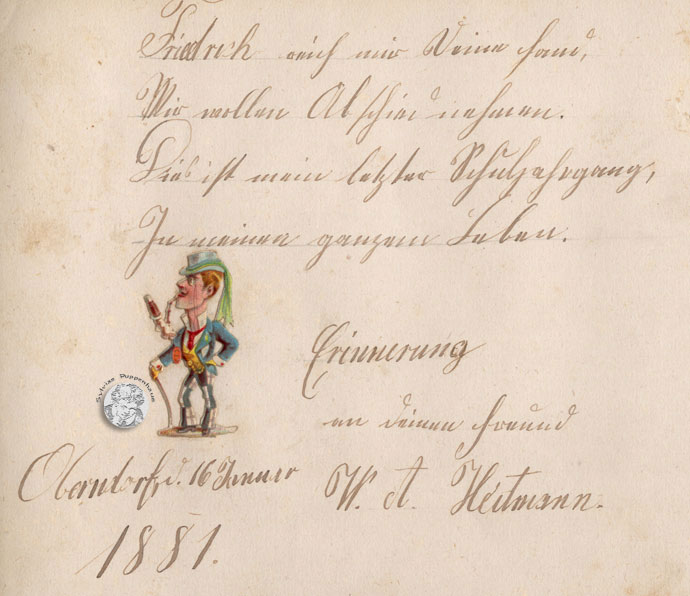 Friedrich reich mir Deine Hand,
Wir wollen Abschied nehmen.
Dies ist mein letzter Schuljahrgang,
In meinen ganzen Leben.
Erinnerung
an deinen Freund
Oberndorf, d. 16 Januar
W. A. Heitmann.
1881.
Sylvias Puppenhaus